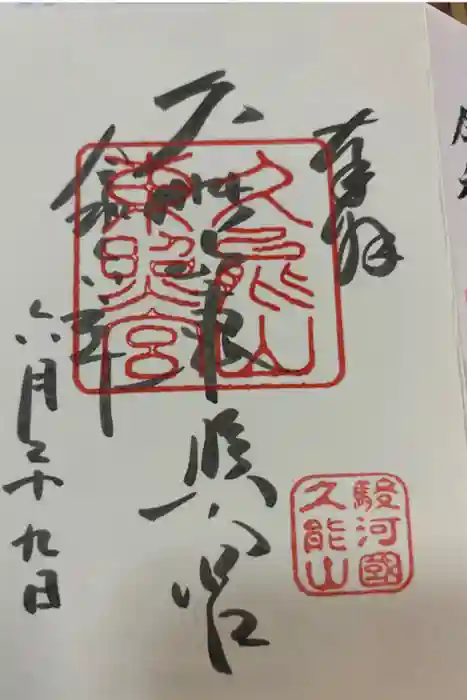 奉拝
久能山東照宮
六月二十九日
久能山
東照宮
駿河國
久能山